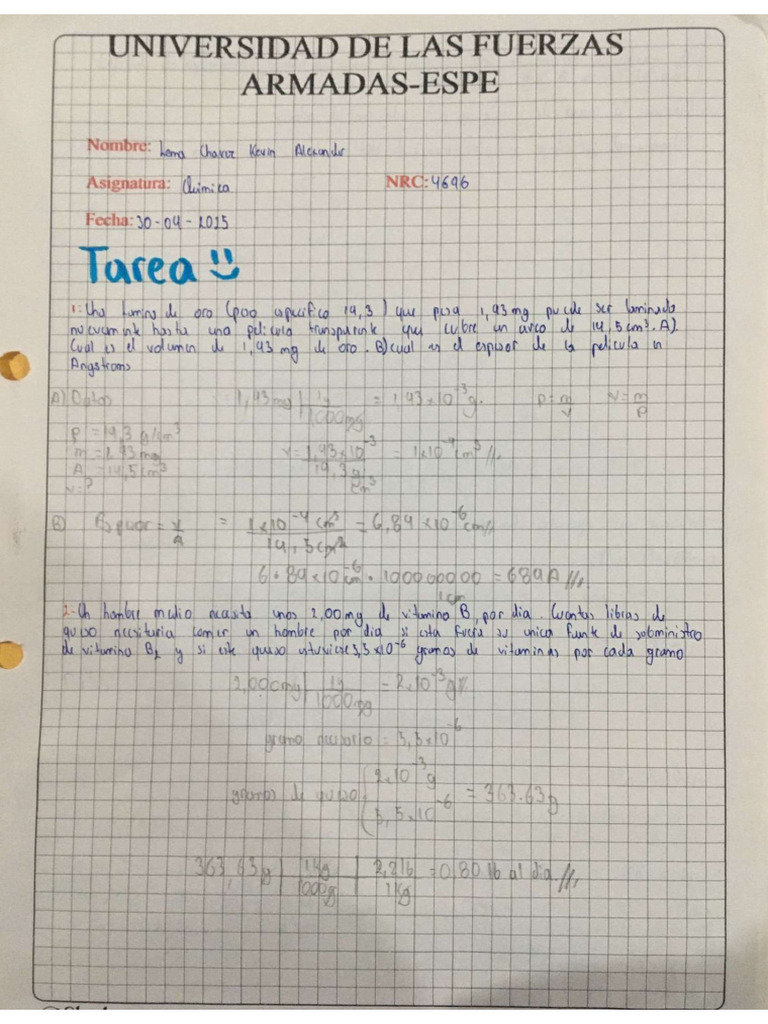 UNIVERSIDAD DE LAS FUERZAS
ARMADAS-ESPE
Nombre: Lema Kevin Alexander
Asignatura: Quimica NRC: 4696
Fecha: 30-04-2025
Tarea
1: Una lamina de oro (peso especifico 19,3) que pesa 1,93 mg puede ser laminado
nuevamente hasta una pelicula transparente que cubre un area de 14,5 cm³. A)
Cual es el volumen de 1,93 mg de oro. B) cual es el espesor de la pelicula in
Angstroms
A) Datos 1,93 mg | 1g / 1000mg = 1,93x10⁻³ g. p = m/v v = m/p
p = 19,3 g/cm³
m = 1,93 mg v = 1,93x10⁻³ / 19,3 g/cm³ = 1x10⁻⁴ cm³ //
A = 14,5 cm³
v = ?
B) = v/A = 1x10⁻⁴ cm³ / 14,5 cm² = 6,89x10⁻⁶ cm//
6,89x10⁻⁶ cm . 100000000 / 1cm = 689 A //
2- Un hombre medio necesita unos 2,00 mg de vitamina B₂ por dia. Cuantas libras de
queso necesitaria comer un hombre por dia si esta fuera su unica fuente de subministro
de vitamina B₂ y si este queso 5,5x10⁻⁶ gramos de vitaminas por cada gramo
2,00 mg | 1g / 1000mg = 2x10⁻³ g
gramo necesario = 5,5x10⁻⁶
gramos de queso 2x10⁻³ g / 5,5x10⁻⁶ = 363.63 g
363,63 g | 1kg / 1000g | 2,2 lb / 1kg = 0,80 lb al dia. //